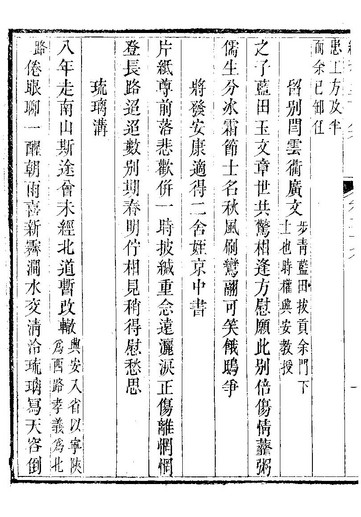 愚上方攻半
而余已卸任
留別閆雲衢廣文步青藍田拔貢余門下士也時權興安教授
之子藍田玉文章世共驚相逢方慰願此別倍傷情虀粥
儒生分冰霜節士名秋風刷鸞翮可笑餓鴟爭
將發安康適得二舍姪京中書
片紙尊前落悲歡併一時披緘重念遠灑淚正傷離惘惘
登長路迢迢數別期春明佇相見稍得慰愁思
琉璃溝
八年走南山斯途曾未經北道暫改轍興安入省以寧陝為西路孝義為北
路倦眼聊一醒朝雨喜新霽澗水交清泠琉璃寫天容倒